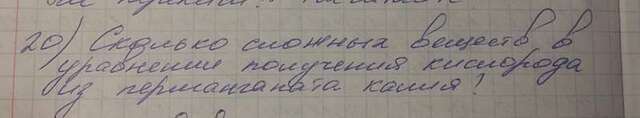 20) Сколько сложных веществ в
уравнении получения кислорода
из перманганата калия?